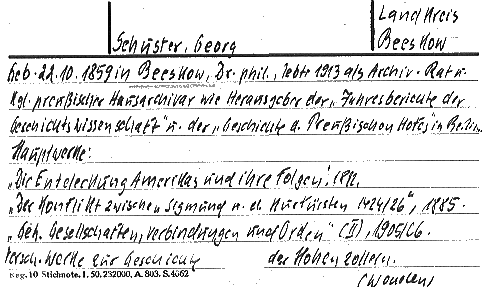 Landkreis
Schuster, Georg Beeskow
Geb. 22.10.1859 in Beeskow, Dr. phil., lebte 1913 als Archiv-Rat u.
Kgl. preußischer Hausarchivar wie Herausgeber der „Jahresberichte der
Geschichtswissenschaft" u. der „Geschichte d. Preußischen Hofes" in Berlin.
Hauptwerke:
„Die Entdeckung Amerikas und ihre Folgen", 1892,
„Der Konflikt zwischen Sigmund u. d. Kurfürsten 1424/26", 1885.
„Geh. Gesellschaften, Verbindungen und Orden" (II), 1905/06.
Versch. Werke zur Geschichte der Hohenzollern.
Reg. 10 Stichnote. I. 50. 232000. A. 803. S. 4662